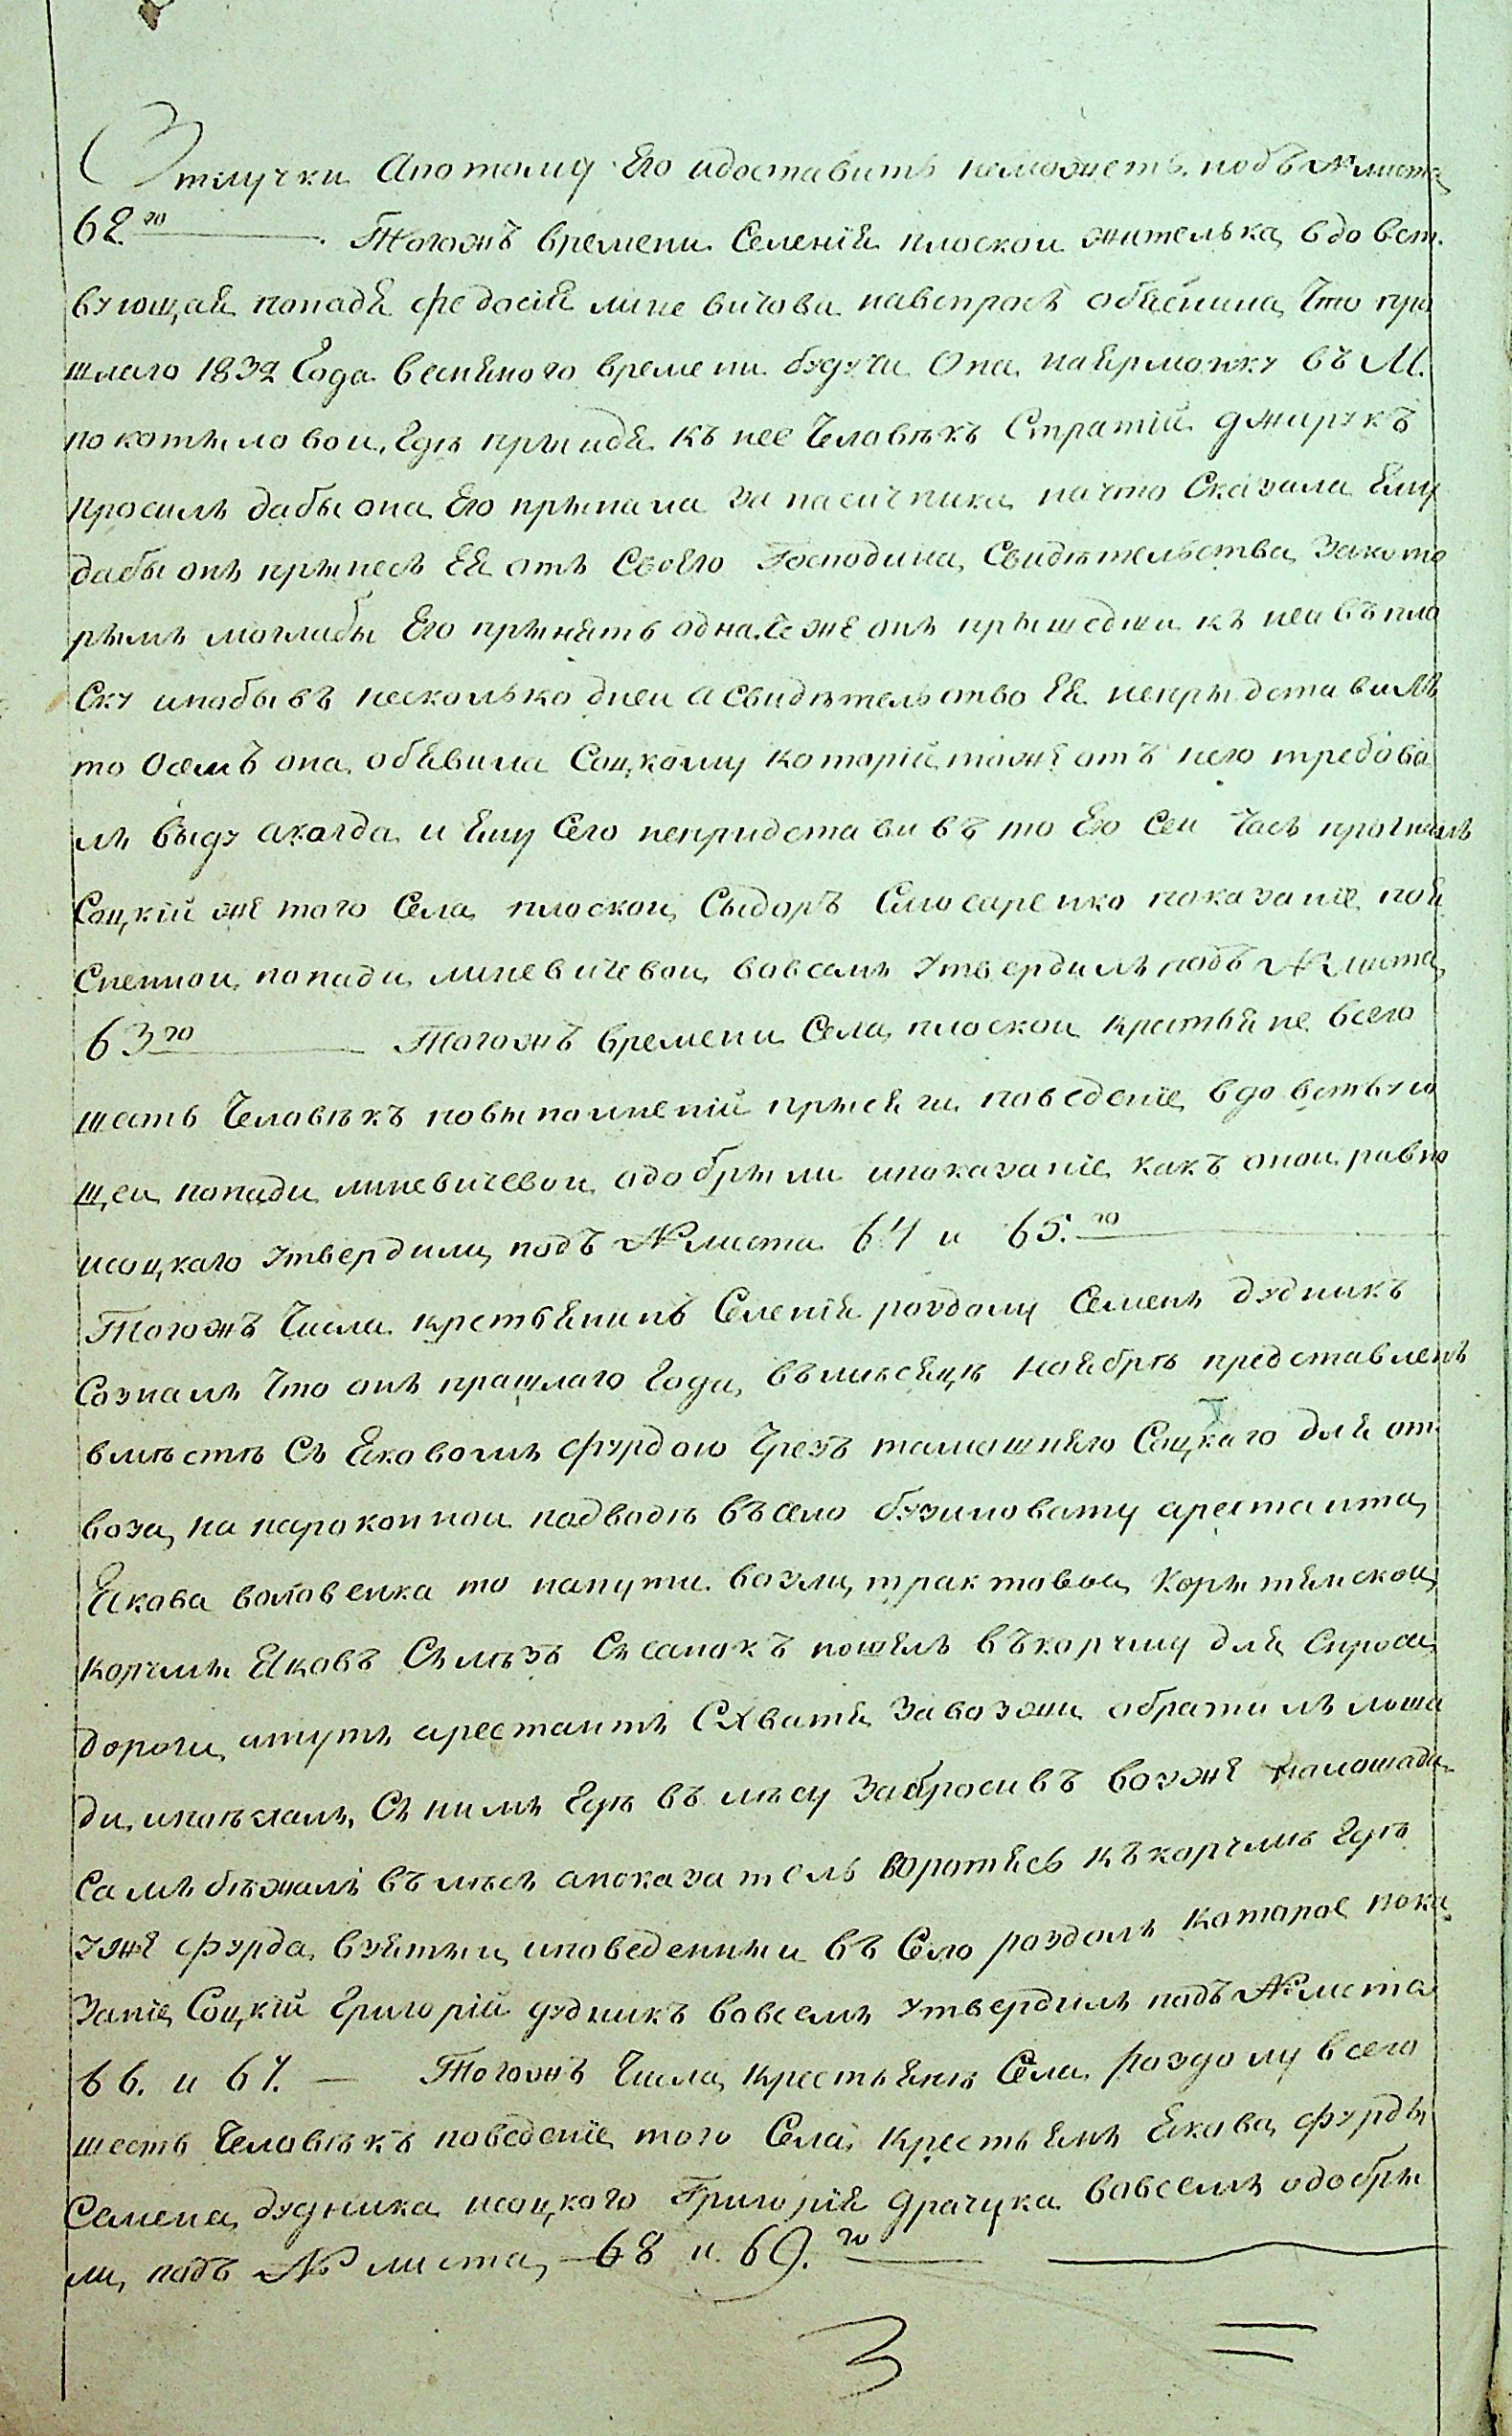 Отлучки Апотому Его идоставить неможетъ. подъ № листа
62.го Тогожъ времени Селенія плоскои жителька вдовст.
вующая попадя федосія линевичова навспросъ объяснила, Что про
шлаго 1832 Года весняного времени будучи Она наярмонку въ М.
покотиловои, Где прыидя къ нее Человѣкъ Стратій джирукъ
просилъ дабы она Его прыняла за пасичника, начто Сказала Ему
дабы онъ прынесъ Ея отъ Своего Господина, Свидѣтельства Закото
рымъ моглабы Его прынять одначе же онъ прышедши къ неи въ пло
Ску ипобывъ несколько днеи а свидѣтельство Ея непрыдставилъ
то Осемъ она обявила Соцкому которій тоже отъ него требова
лъ виду акогда и Ему Сего непридставивъ то Его Сеи Часъ прогналъ
Соцкій же того Села плоскои Сыдоръ Слюсаренко показаніе поя
Сненнои попади линевичевои вовсемъ утвердилъ подъ № листа
63го Тогожъ времени Села плоскои крестьяне всего
шесть Человѣкъ повыполненіи прысяги поведеніе вдовствую
щеи попади линевичевои одобрыли ипоказаніе какъ онои равно
исоцкаго утвердили подъ № листа 64 и 65.го
Тогожъ Числа крстьянинъ Селенія роздолу Семенъ дудникъ
Сознался Что онъ прашлаго Года, въмѣсяцѣ ноябрѣ представленъ
вмѣстѣ Съ Яковомъ фурдою Чрезъ тамошняго Соцкаго для от
воза, на пароконнои подводѣ въсело бузиновату арестанта,
Якова воловенка то напути. возли, трактовои Корытянскои
корчмы Яковъ Слѣзъ Съсанокъ пошолъ въкорчму для Спроса
дороги, атутъ арестантъ Схватя Завозжи обратилъ лоша
ди, ипоѣхалъ, Съ нимъ Где въ лѣсу Забросивъ возже налошади
Самъ бѣжалъ въ лѣсъ апоказатель воротясь къкорчмѣ Где
уже фурда, взятыи, иповеденныи въ Село роздолъ которое пока
Заніе, Соцкій Григорій дудникъ вовсемъ утвердилъ подъ № листа
66. и 67. — Тогожъ Числа, крестьянѣ Села роздолу всего
шесть Человѣкъ поведеніе того Села, крестьянъ Якова, фурды
Семена, дудника, исоцкого Григорія драчука вовсемъ одобры
ли, подъ № листа, 68 и 69.го
З